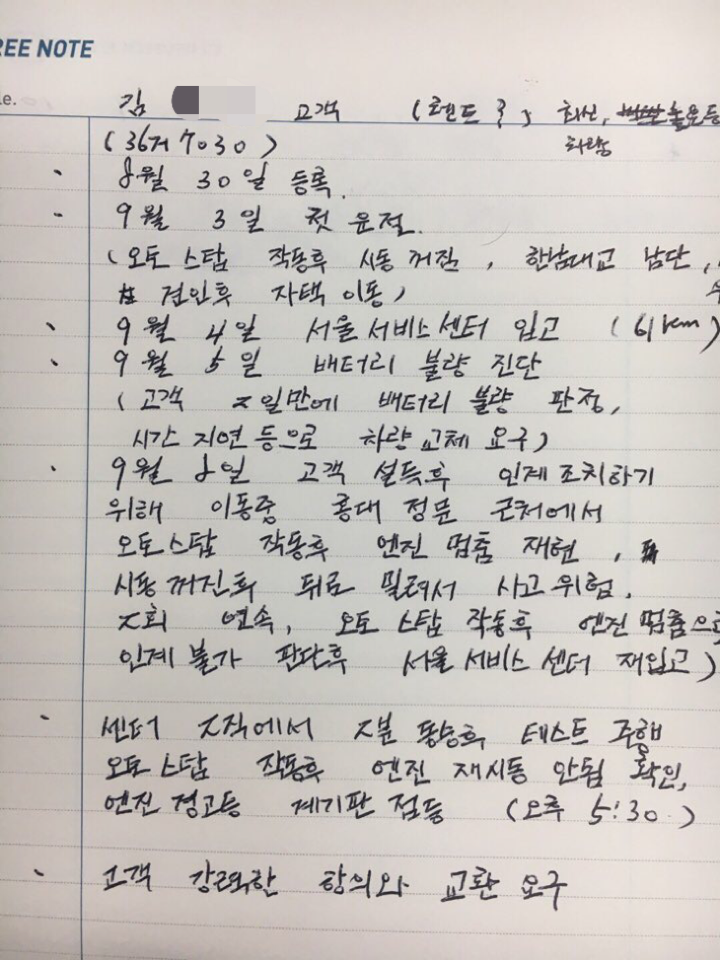 REE NOTE
le.
김 고객 (렌드 주, 최신,
차량
(36거 7030)
- 8월 30일 등록.
- 9월 3일 첫 운전.
(오토 스탑 작동후 시동 꺼짐, 한남대교 남단,
견인후 자택 이동)
- 9월 4일 서울서비스센터 입고 (61km)
- 9월 5일 배터리 불량 진단
(고객 2일만에 배터리 불량 판정,
시간 지연 등으로 차량교체 요구)
- 9월 8일 고객 설득후 인계조치하기
위해 이동중 홍대 정문 근처에서
오토스탑 작동후 엔진 멈춤 재현,
시동 꺼진후 뒤로 밀려서 사고위험.
2회 연속, 오토 스탑 작동후 엔진 멈춤으로
인계 불가 판단후 서울서비스센터 재입고)
- 센터 2직에서 2분 동승후 테스트 주행
오토스탑 작동후 엔진 재시동 안됨 확인,
엔진경고등 계기판 점등 (오후 5:30.)
- 고객 강력한 항의와 교환 요구